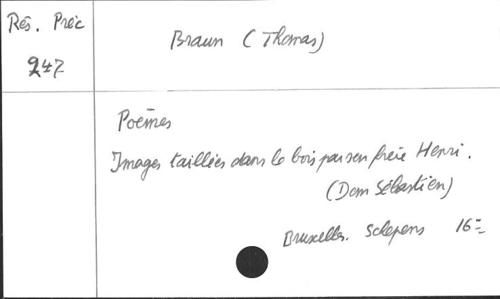 Rés. Préc
247
Braun (Thomas)
Poèmes
Images taillées dans le bois par son frère Henri.
(Dom Sébastien)
Bruxelles. Schepens 16=